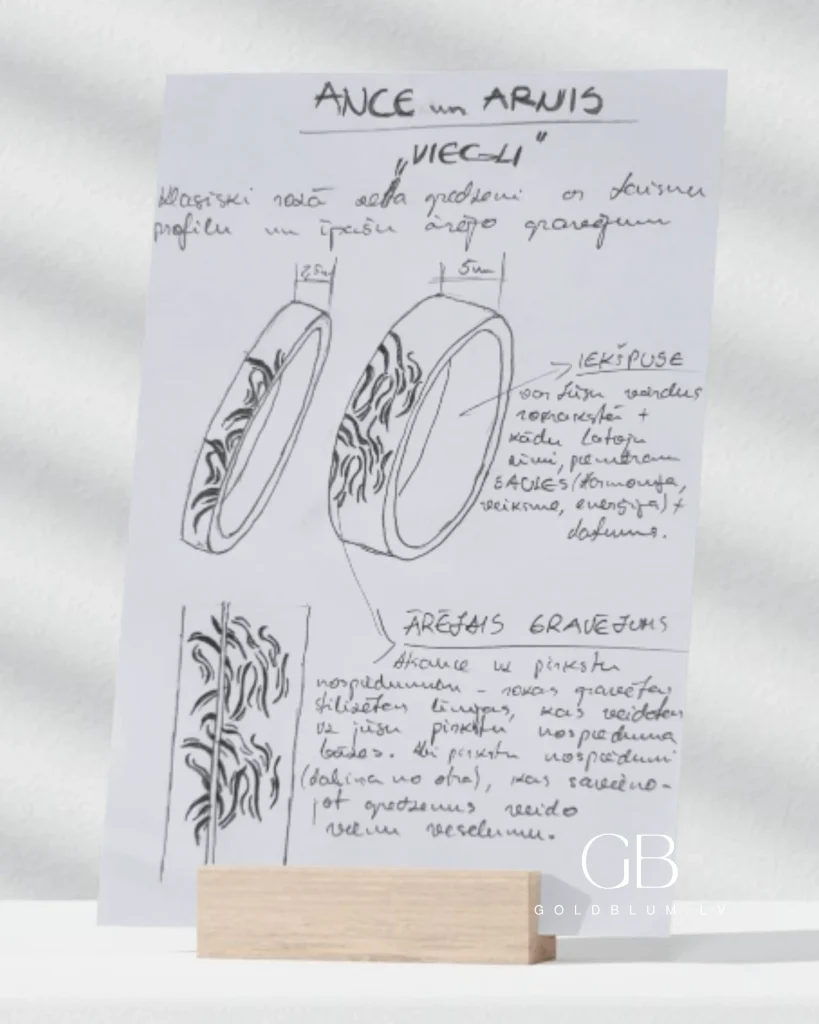 ANCE un ARNIS
„VIEGLI"
klasiski rozā zelta gredzeni ar taisnu
profilu un īpašu ārējo gravējumu
2,5m
5m
IEKŠPUSE
var Jūsu vārdus
rokrakstā +
kādu latvju
zīmi, piemēram
SAULES (harmonija,
veiksme, enerģija) +
datums.
ĀRĒJAIS GRAVĒJUMS
Akcents uz pirkstu
nospiedumiem - rokas gravētas
stilizētas līnijas, kas veidotas
uz jūsu pirkstu nospieduma
bāzes. Abi pirkstu nospiedumi
(daļiņa no otra), kas savieno-
jot gredzenus veido
vienu veselumu.
GB
GOLDBLUM.LV